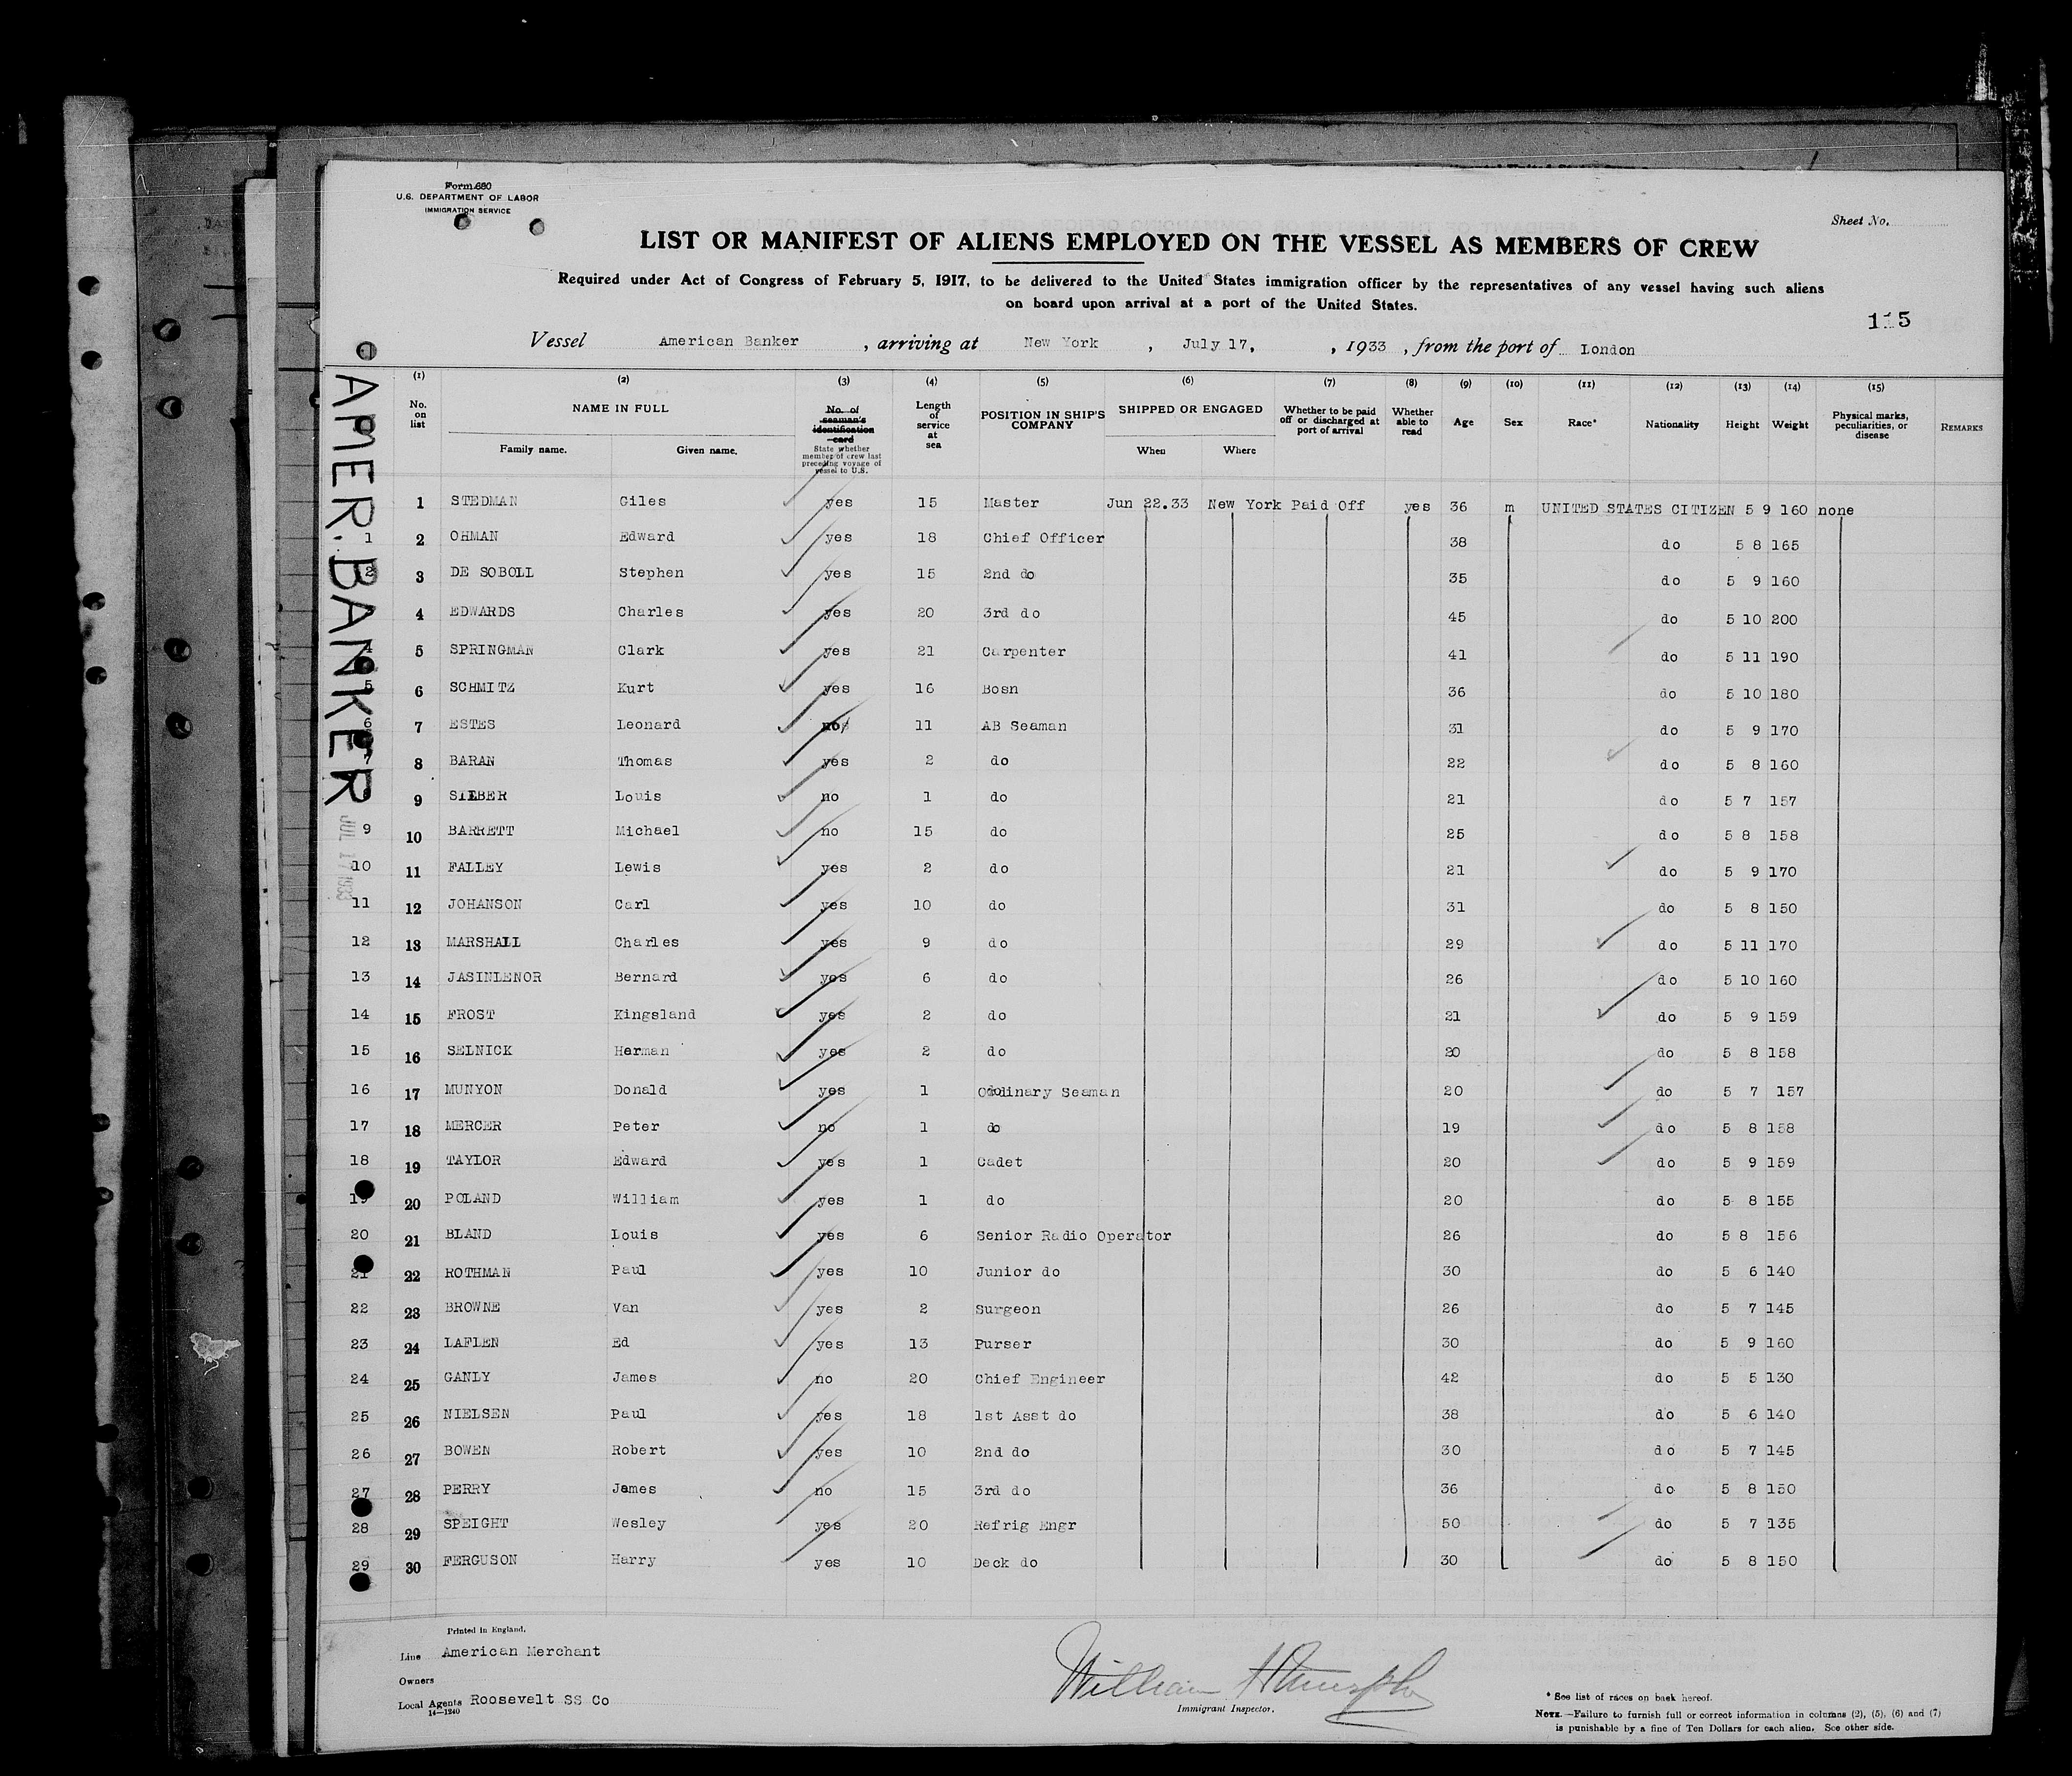 Form 680
U.S. DEPARTMENT OF LABOR
IMMIGRATION SERVICE
Sheet No.
LIST OR MANIFEST OF ALIENS EMPLOYED ON THE VESSEL AS MEMBERS OF CREW
Required under Act of Congress of February 5, 1917, to be delivered to the United States immigration officer by the representatives of any vessel having such aliens
on board upon arrival at a port of the United States.
115
Vessel American Banker , arriving at New York , July 17, , 1933 , from the port of London
(1) (2) (3) (4) (5) (6) (7) (8) (9) (10) (11) (12) (13) (14) (15)
No. on list NAME IN FULL Family name. Given name. No. of seaman's identification card State whether member of crew last preceding voyage of vessel to U.S. Length of service at sea POSITION IN SHIP'S COMPANY SHIPPED OR ENGAGED When Where Whether to be paid off or discharged at port of arrival Whether able to read Age Sex Race* Nationality Height Weight Physical marks, peculiarities, or disease REMARKS
1 STEDMAN Giles yes 15 Master Jun 22.33 New York Paid Off yes 36 m UNITED STATES CITIZEN 5 9 160 none
1 2 OHMAN Edward yes 18 Chief Officer 38 do 5 8 165
2 3 DE SOBOLL Stephen yes 15 2nd do 35 do 5 9 160
4 EDWARDS Charles yes 20 3rd do 45 do 5 10 200
4 5 SPRINGMAN Clark yes 21 Carpenter 41 do 5 11 190
5 6 SCHMITZ Kurt yes 16 Bosn 36 do 5 10 180
6 7 ESTES Leonard no 11 AB Seaman 31 do 5 9 170
7 8 BARAN Thomas yes 2 do 22 do 5 8 160
9 SIEBER Louis no 1 do 21 do 5 7 157
9 10 BARRETT Michael no 15 do 25 do 5 8 158
10 11 FALLEY Lewis yes 2 do 21 do 5 9 170
11 12 JOHANSON Carl yes 10 do 31 do 5 8 150
12 13 MARSHALL Charles yes 9 do 29 do 5 11 170
13 14 JASINLENOR Bernard yes 6 do 26 do 5 10 160
14 15 FROST Kingsland yes 2 do 21 do 5 9 159
15 16 SELNICK Herman yes 2 do 20 do 5 8 158
16 17 MUNYON Donald yes 1 Ordinary Seaman 20 do 5 7 157
17 18 MERCER Peter no 1 do 19 do 5 8 158
18 19 TAYLOR Edward yes 1 Cadet 20 do 5 9 159
19 20 POLAND William yes 1 do 20 do 5 8 155
20 21 BLAND Louis yes 6 Senior Radio Operator 26 do 5 8 156
21 22 ROTHMAN Paul yes 10 Junior do 30 do 5 6 140
22 23 BROWNE Van yes 2 Surgeon 26 do 5 7 145
23 24 LAFLEN Ed yes 13 Purser 30 do 5 9 160
24 25 GANLY James no 20 Chief Engineer 42 do 5 5 130
25 26 NIELSEN Paul yes 18 1st Asst do 38 do 5 6 140
26 27 BOWEN Robert yes 10 2nd do 30 do 5 7 145
27 28 PERRY James no 15 3rd do 36 do 5 8 150
28 29 SPEIGHT Wesley yes 20 Refrig Engr 50 do 5 7 135
29 30 FERGUSON Harry yes 10 Deck do 30 do 5 8 150
AMER. BANKER
JUL 17 1933
Printed in England.
Line American Merchant
Owners
Local Agents Roosevelt SS Co
14—1240
William H Murphy
Immigrant Inspector.
* See list of races on back hereof.
NOTE.—Failure to furnish full or correct information in columns (2), (5), (6) and (7)
is punishable by a fine of Ten Dollars for each alien. See other side.